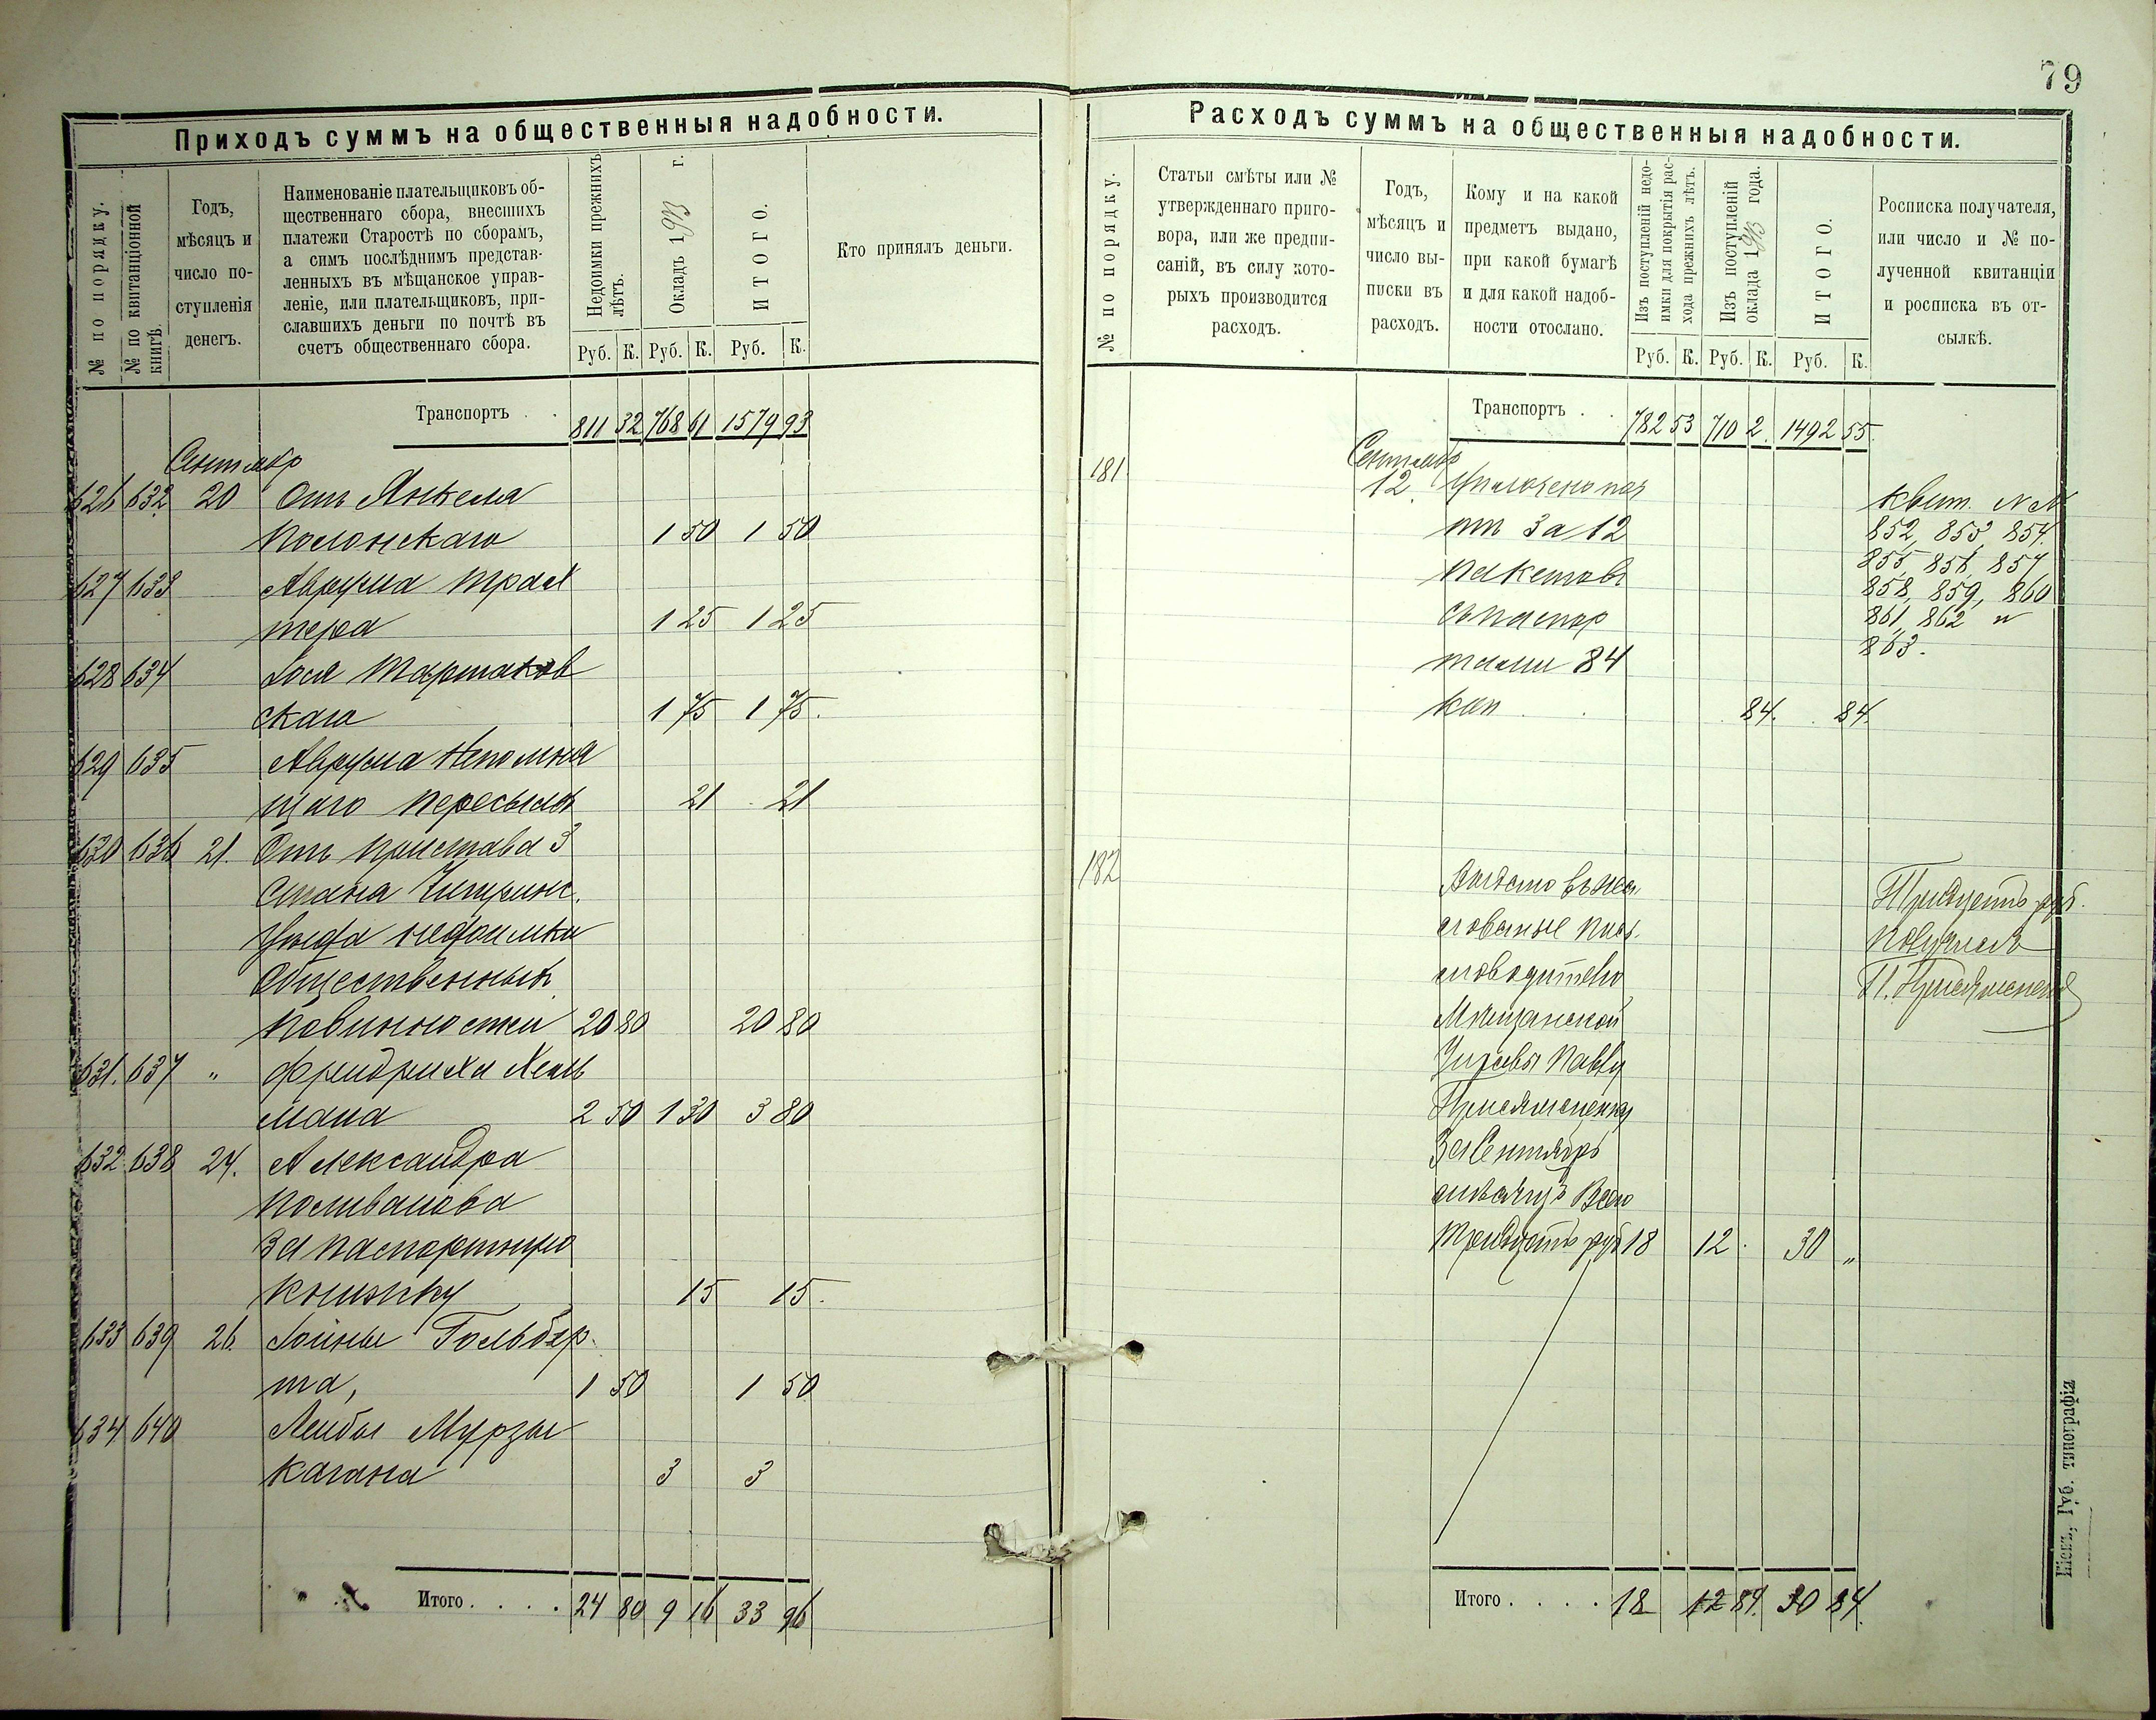 79
Приходъ суммъ на общественныя надобности.
№ по порядку.
№ по квитанціонной книгѣ.
Годъ,
мѣсяцъ и
число по-
ступленія
денегъ.
Наименованіе плательщиковъ об-
щественнаго сбора, внесшихъ
платежи Старостѣ по сборамъ,
а симъ послѣднимъ представ-
ленныхъ въ мѣщанское управ-
леніе, или плательщиковъ, при-
славшихъ деньги по почтѣ въ
счетъ общественнаго сбора.
Недоимки прежнихъ
лѣтъ.
Окладъ 1913 г.
ИТОГО.
Кто принялъ деньги.
Руб. К. Руб. К. Руб. К.
Транспортъ . . 811 32 768 61 1579 93
Сентябр
626 632 20 Отъ Янкеля
Полонскаго 1 50 1 50
627 633 Аврума Трах
тера 1 25 1 25
628 634 Тартаков
скаго 1 75 1 75.
629 635 Аврума Непомня
щаго пересыльн 21 21
630 636 21. Отъ Пристава 3
Стана Чигринс.
Уезда недоимки
Общественныхъ
повинностей 20 80 20 80
631. 637 " Фридриха Хель
мана 2 50 1 30 3 80
632 638 24. Александра
Поливанова
За паспортную
книжку 15 15.
633 639 26. Гольбер
та, 1 50 1 50
634 640 Лейбы Мурзы
Кагана 3 3
Итого . . . . 24 80 9 16 33 96
Расходъ суммъ на общественныя надобности.
№ по порядку.
Статьи смѣты или №
утвержденнаго приго-
вора, или же предпи-
саній, въ силу кото-
рыхъ производится
расходъ.
Годъ,
мѣсяцъ и
число вы-
писки въ
расходъ.
Кому и на какой
предметъ выдано,
при какой бумагѣ
и для какой надоб-
ности отослано.
Изъ поступленій недо-
имки для покрытія рас-
хода прежнихъ лѣтъ.
Изъ поступленій
оклада 1913 года.
ИТОГО.
Росписка получателя,
или число и № по-
лученной квитанціи
и росписка въ от-
сылкѣ.
Руб. К. Руб. К. Руб. К.
Транспортъ . . 782 53 710 2. 1492 55.
Сентябр
181. 12. Уплочено поч
тѣ за 12
пакетовъ
съ паспор
тами 84
коп . . 84. . 84.
Квит. NN
852, 853, 854.
855, 856, 857
858, 859, 860
861, 862 и
863.
182 Выдано въ жа
лованье пись
моводителю
Мѣщанской
Управы Павлу
Присяжненку
За Сентябрь
мѣсяцъ Всего
тридцать руб 18 12 . 30 "
Тридцать руб.
получилъ
П. Присяжненко
Итого . . . . 18 12 84. 30 84.
Кіевъ, Губ. типографія